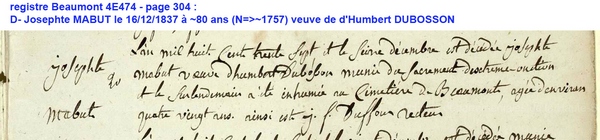 registre Beaumont 4E474 - page 304 :
D- Josephte MABUT le 16/12/1837 à ~80 ans (N=>~1757) veuve de d'Humbert DUBOSSON
L'an mil huit cent trente sept et le seize décembre est décédée josephte
josephte mabut veuve d'humbert Dubosson munie du sacrement d'extreme onction
et le surlendemain a été inhumée au Cimetière de Beaumont, agée d'environ
Mabut quatre vingt ans. ainsi est j. f. Duffour recteur
décédé munie